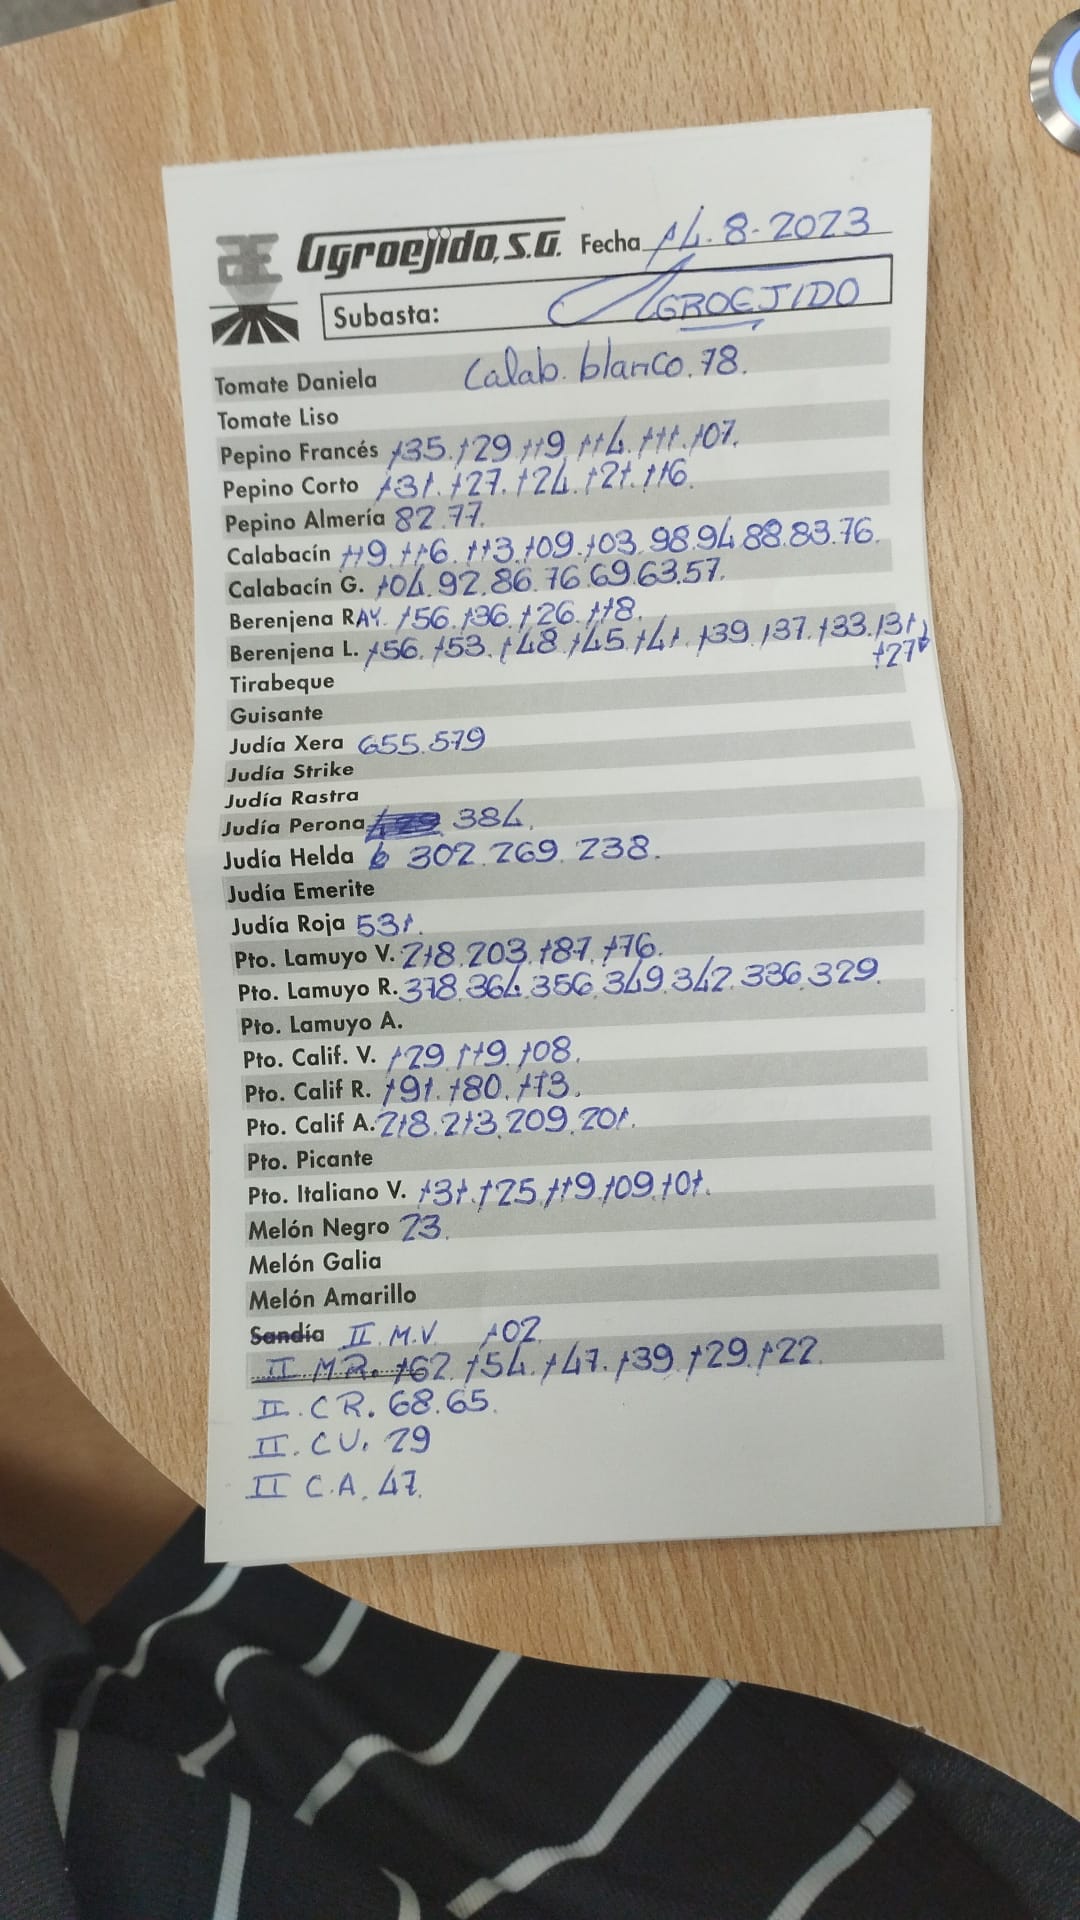 Agroejido, S.A. Fecha 14.8-2023
Subasta: AGROEJIDO
Tomate Daniela Calab. blanco. 78.
Tomate Liso
Pepino Francés 135. 129 119 114. 111. 107.
Pepino Corto 131. 127. 124. 121. 116.
Pepino Almería 82.77.
Calabacín 119. 116. 113. 109. 103. 98. 94. 88. 83. 76.
Calabacín G. 104. 92. 86. 76. 69. 63. 57.
Berenjena RAY. 156. 136. 126. 118.
Berenjena L. 156. 153. 148. 145. 141. 139. 137. 133. 131
127
Tirabeque
Guisante
Judía Xera 655.579
Judía Strike
Judía Rastra
Judía Perona 384.
Judía Helda 302. 269. 238.
Judía Emerite
Judía Roja 531.
Pto. Lamuyo V. 218. 203. 187. 176.
Pto. Lamuyo R. 378. 364. 356. 349. 342. 336. 329.
Pto. Lamuyo A.
Pto. Calif. V. 129. 119. 108.
Pto. Calif R. 191. 180. 173.
Pto. Calif A. 218. 213. 209. 201.
Pto. Picante
Pto. Italiano V. 131. 125. 119. 109. 101.
Melón Negro 23.
Melón Galia
Melón Amarillo
Sandía II. M.V. 102.
II M R. 162. 154. 147. 139. 129. 122.
II. C R. 68. 65.
II. C V. 29
II C. A. 47.